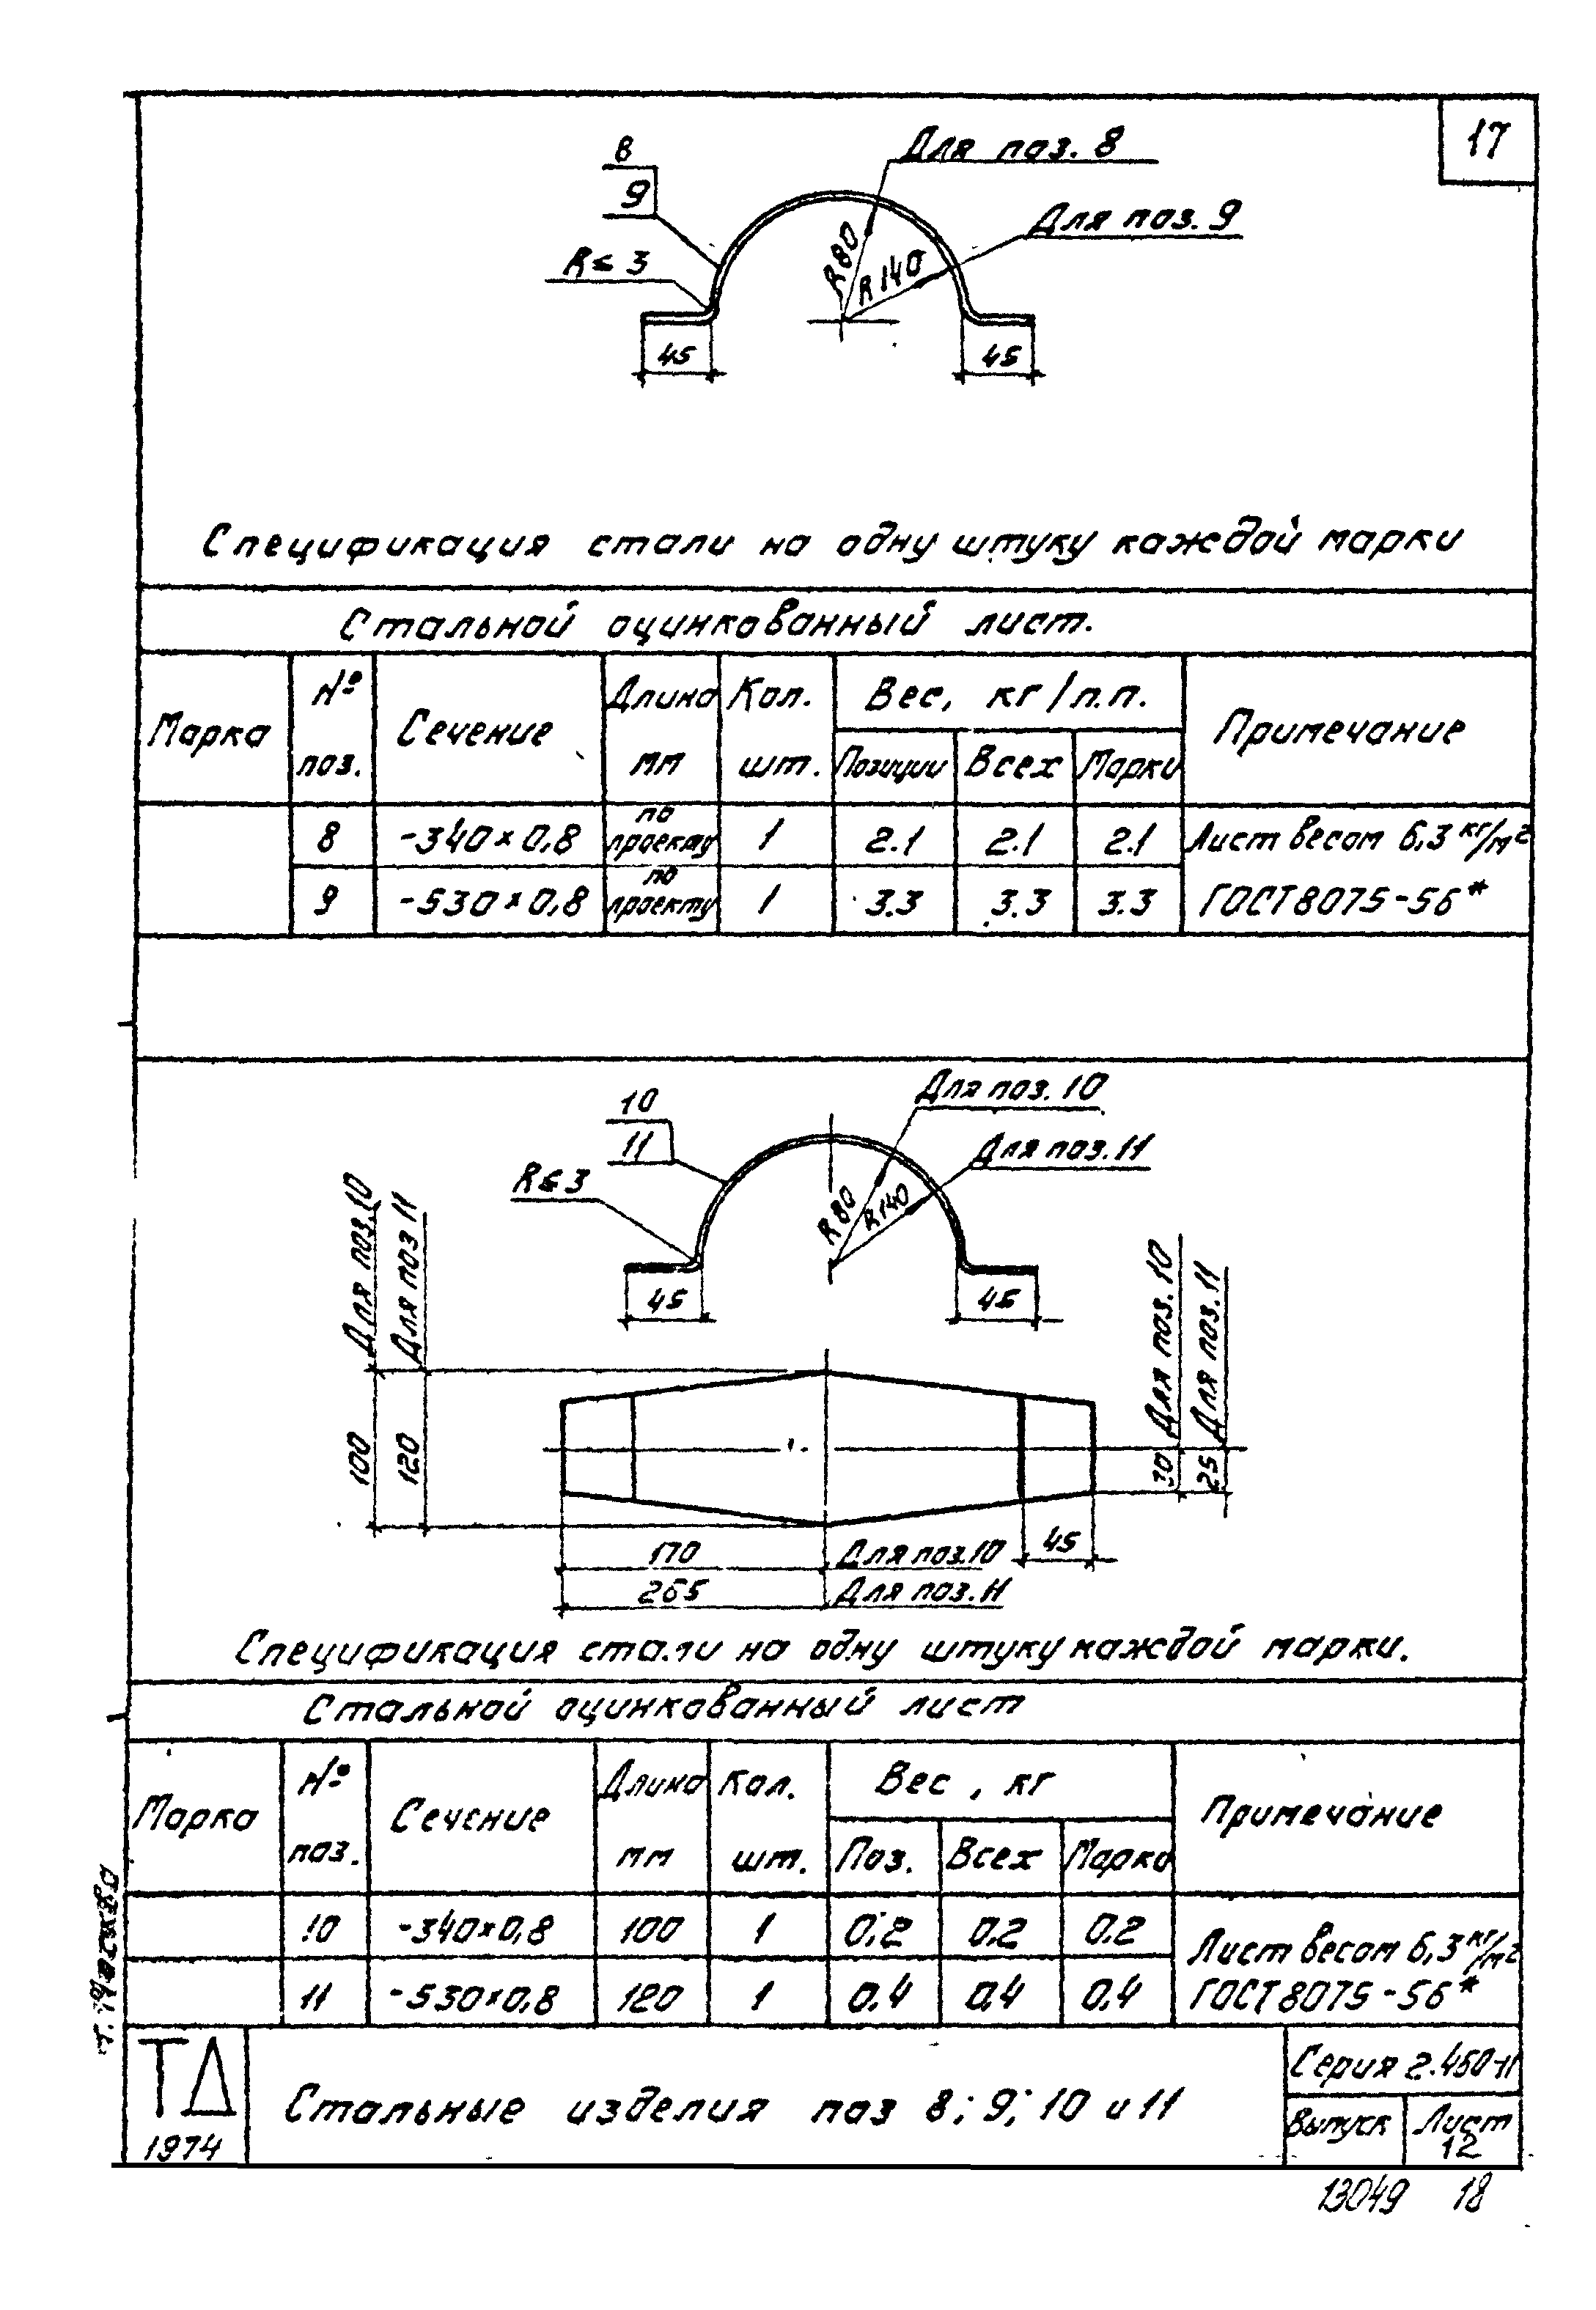 17
8
9
Для поз. 8
Для поз. 9
R≤ 3
R80
R140
45
45
Спецификация стали на одну штуку каждой марки
Стальной оцинкованный лист.
Марка
№ поз.
Сечение
Длина мм
Кол. шт.
Вес, кг/п.п.
Позиции
Всех
Марки
Примечание
8 -340×0,8 по проекту 1 2.1 2.1 2.1 Лист весом 6,3 кг/м²
9 -530×0,8 по проекту 1 3.3 3.3 3.3 ГОСТ 8075-56*
10
11
Для поз. 10
Для поз. 11
R≤3
R80
R140
45
45
Для поз. 10
Для поз 11
100
120
Для поз. 10
Для поз. 11
30
25
170 Для поз.10
45
265 Для поз. 11
Спецификация стали на одну штуку каждой марки.
Стальной оцинкованный лист
Марка
№ поз.
Сечение
Длина мм
Кол. шт.
Вес, кг
Поз.
Всех
Марка
Примечание
10 -340×0,8 100 1 0,2 0,2 0,2 Лист весом 6,3 кг/м²
11 -530×0,8 120 1 0,4 0,4 0,4 ГОСТ 8075-56*
ТД
1974
Стальные изделия поз 8; 9; 10 и 11
Серия 2.460-11
Выпуск
Лист
12
13049 18